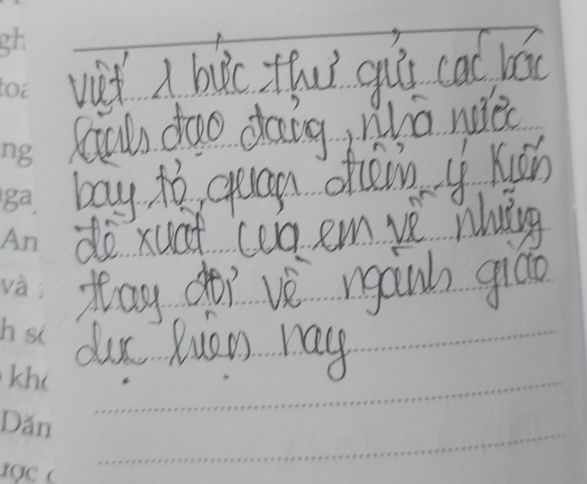 gh
toa
ng
ga
An
và
h số
khô
Dân
ược c
viết 1 bức thư gửi các bác
lãnh đạo đảng, nhà nước
bày tỏ, quan điểm, ý kiến
đề xuất của em về những
thay đổi về ngành giáo
dục hiện nay